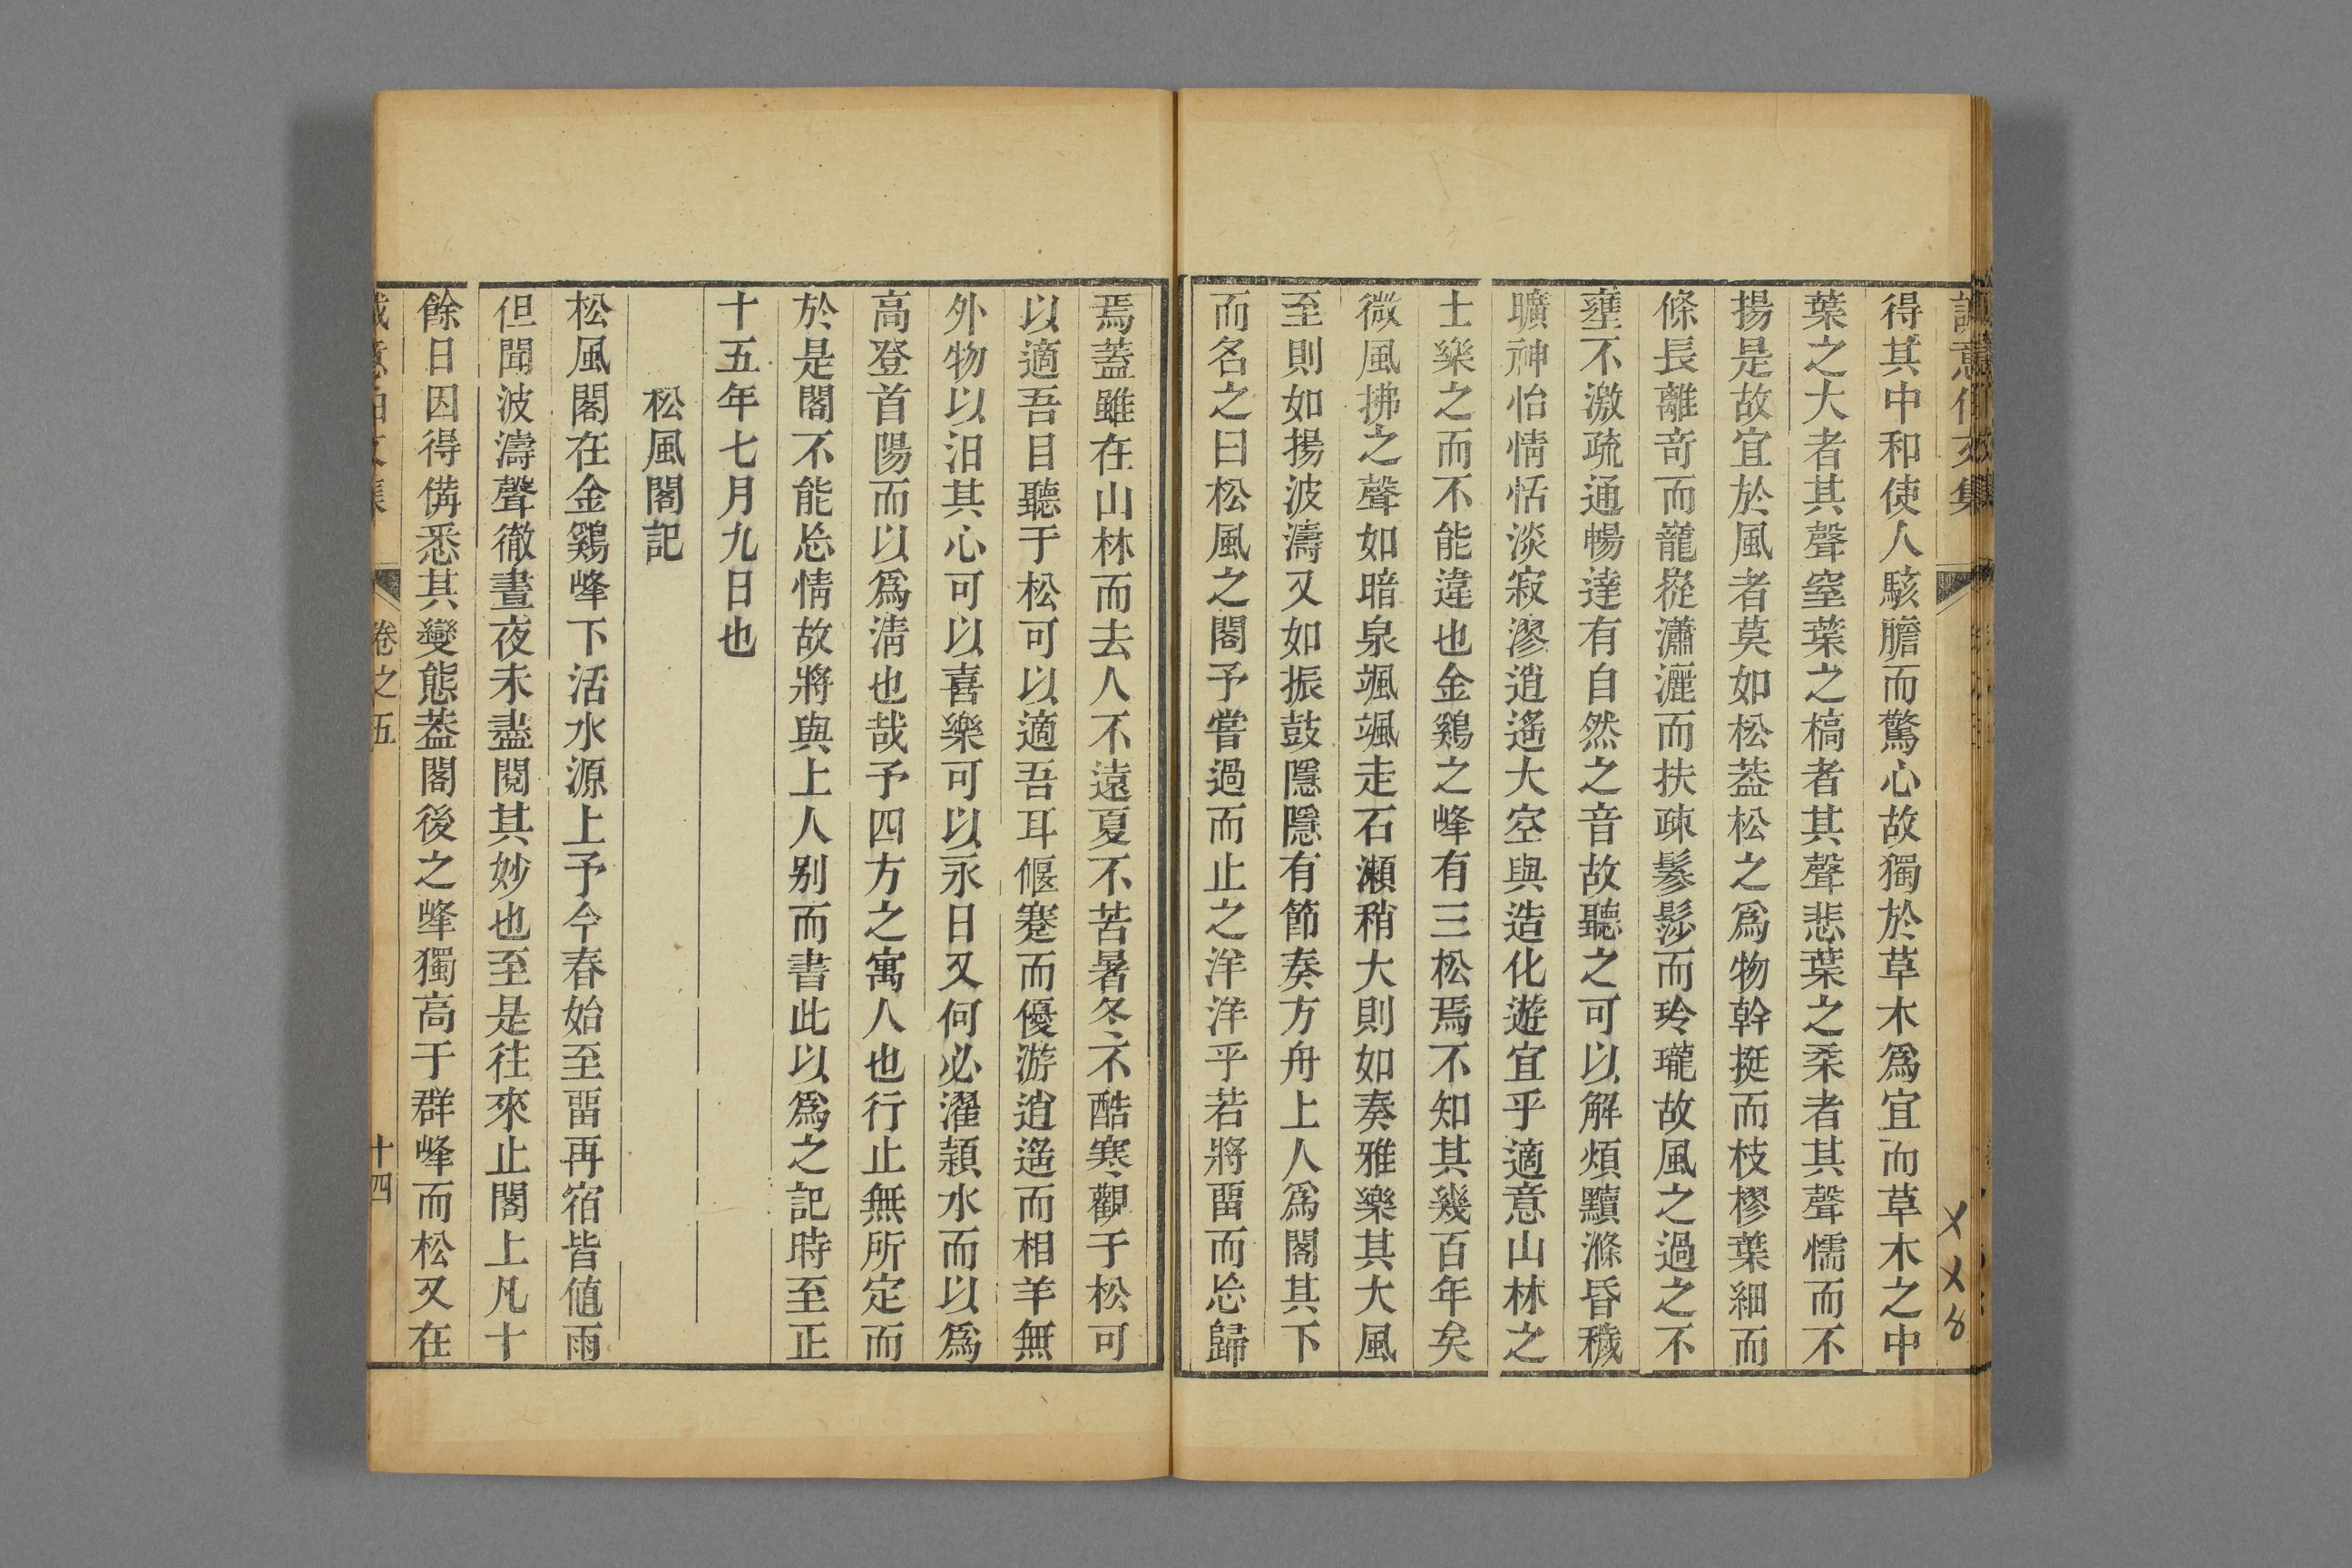 誠意伯文集
得其中和使人駭膽而驚心故獨於草木爲宜而草木之中
葉之大者其聲窒葉之槁者其聲悲葉之柔者其聲懦而不
揚是故宜於風者莫如松葢松之爲物幹挺而枝樛葉細而
條長離竒而巃嵸瀟灑而扶疎鬖髿而玲瓏故風之過之不
壅不激疏通暢達有自然之音故聽之可以解煩黷滌昏穢
曠神怡情恬淡寂漻逍遙大空與造化遊宜乎適意山林之
士樂之而不能違也金鷄之峰有三松焉不知其幾百年矣
微風拂之聲如暗泉颯颯走石瀨稍大則如奏雅樂其大風
至則如揚波濤又如振鼓隱隱有節奏方舟上人爲閣其下
而名之曰松風之閣予嘗過而止之洋洋乎若將畱而忩歸
焉蓋雖在山林而去人不遠夏不苦暑冬不酷寒觀于松可
以適吾目聽于松可以適吾耳偃蹇而優游逍遙而相羊無
外物以汨其心可以喜樂可以永日又何必濯潁水而以爲
高登首陽而以爲淸也哉予四方之寓人也行止無所定而
於是閣不能忩情故將與上人别而書此以爲之記時至正
十五年七月九日也
松風閣記
松風閣在金鷄峰下活水源上予今春始至畱再宿皆値雨
但聞波濤聲徹晝夜未盡閱其妙也至是往來止閣上凡十
餘日因得備悉其變態葢閣後之峰獨高于群峰而松又在
誠意伯文集
卷之五
十四